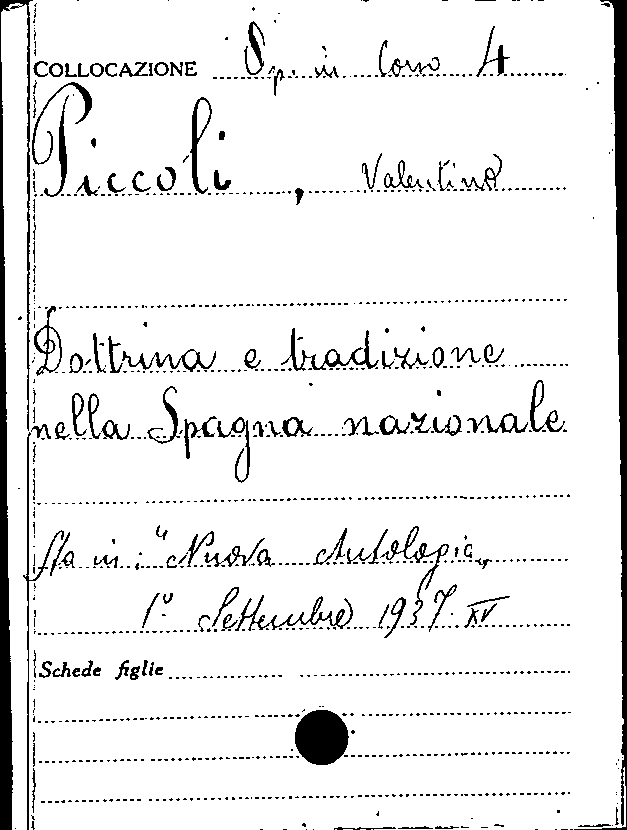 COLLOCAZIONE Sp. in Corso 4
Piccoli, Valentino
Dottrina e tradizione
nella Spagna nazionale
Sta in: "Nuova Antologia„
1º Settembre 1937. XV
Schede figlie